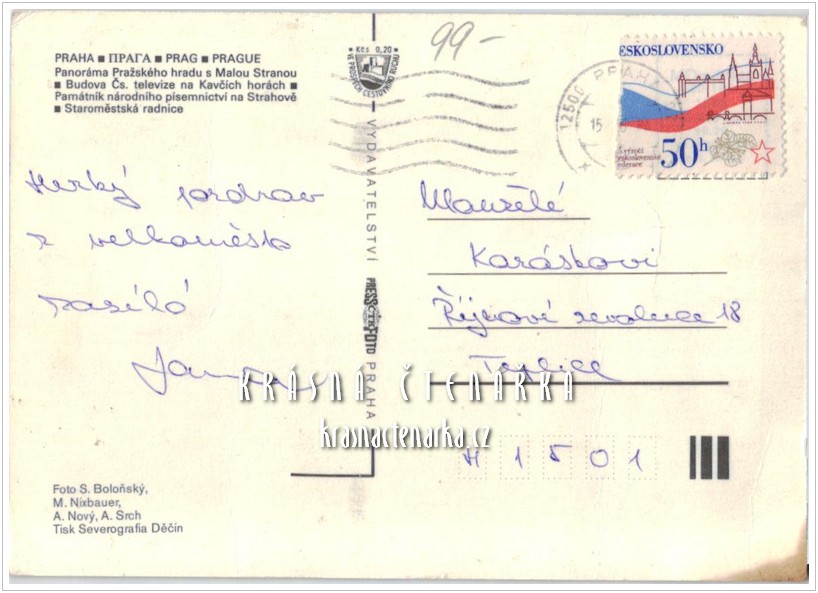 PRAHA ■ ПРАГА ■ PRAG ■ PRAGUE
Panoráma Pražského hradu s Malou Stranou
■ Budova Čs. televize na Kavčích horách ■
Památník národního písemnictví na Strahově
■ Staroměstská radnice
Kčs 0,20
VE PROSPĚCH CESTOVNÍHO RUCHU
99-
12500 PRAHA
15
ČESKOSLOVENSKO
50h
výročí
československé
federace
Hezký pozdrav
z velkoměsta
zasílá
VYDAVATELSTVÍ PRESSFOTO PRAHA
Manželé
Karáskovi
Říjnové revoluce 18
Teplice
41501
KRÁSNÁ ČTENÁŘKA
krasnactenarka.cz
Foto S. Boloňský,
M. Nixbauer,
A. Nový, A. Srch
Tisk Severografia Děčín